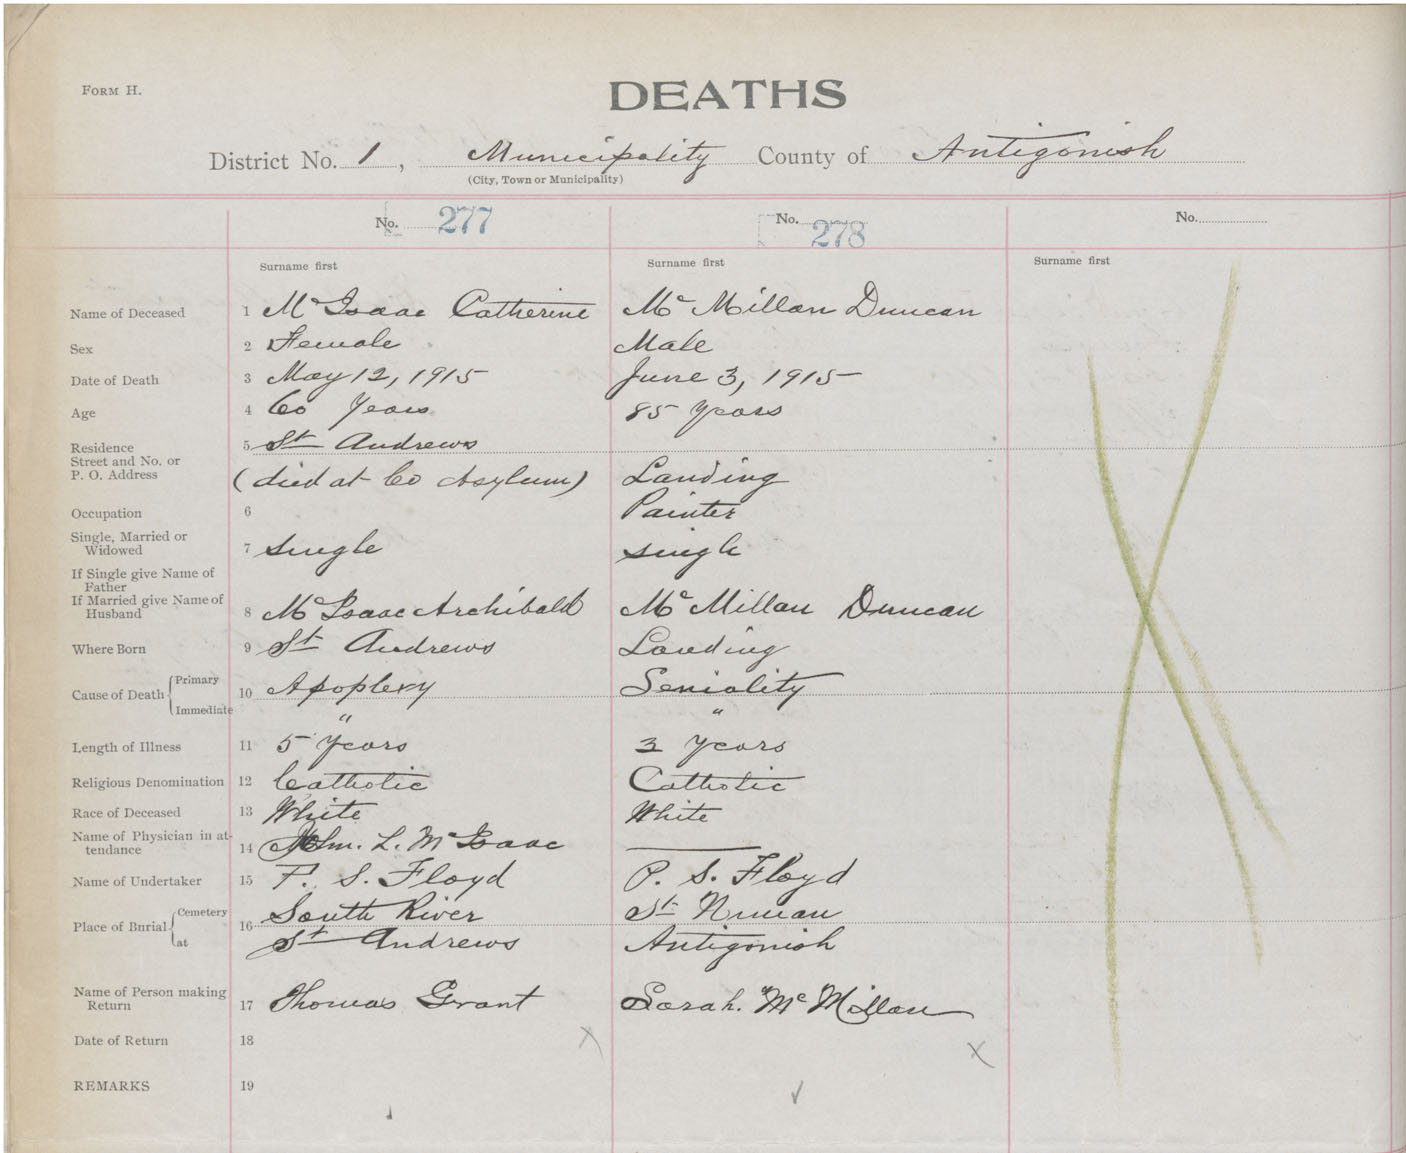 FORM H.
DEATHS
District No. 1, Municipality County of Antigonish
(City, Town or Municipality)
No. 277 No. 278 No.
Surname first Surname first Surname first
Name of Deceased 1 Mc Isaac Catherine Mc Millan Duncan
Sex 2 Female Male
Date of Death 3 May 12, 1915 June 3, 1915
Age 4 60 Years 85 Years
Residence 5 St Andrews
Street and No. or
P. O. Address (died at Co Asylum) Landing
Occupation 6 Painter
Single, Married or
Widowed 7 Single single
If Single give Name of
Father
If Married give Name of
Husband 8 Mc Isaac Archibald Mc Millan Duncan
Where Born 9 St Andrews Landing
Cause of Death Primary 10 Apoplexy Seniality
Immediate " "
Length of Illness 11 5 Years 3 Years
Religious Denomination 12 Catholic Catholic
Race of Deceased 13 White White
Name of Physician in at-
tendance 14 L. Mc Isaac
Name of Undertaker 15 P. S. Floyd P. S. Floyd
Place of Burial Cemetery 16 South River St Ninian
at St Andrews Antigonish
Name of Person making
Return 17 Thomas Grant Sarah. Mc Millan
Date of Return 18
REMARKS 19